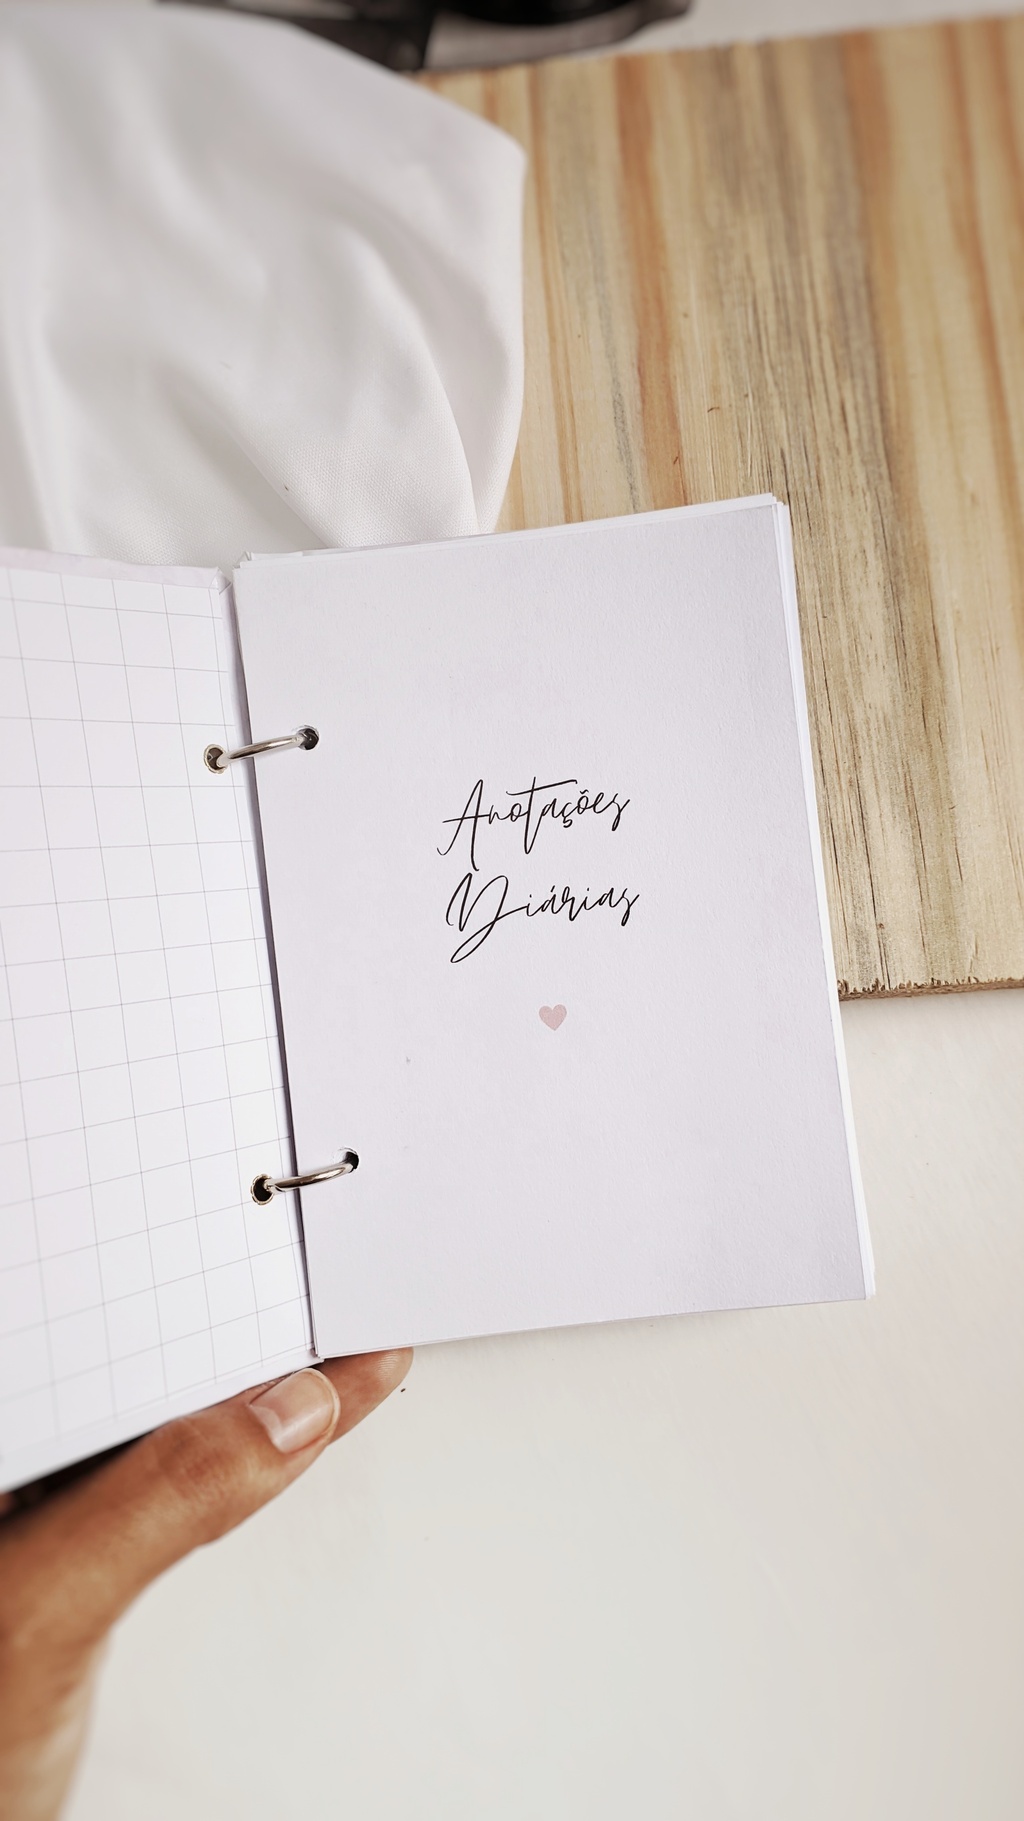 Anotações
Diárias